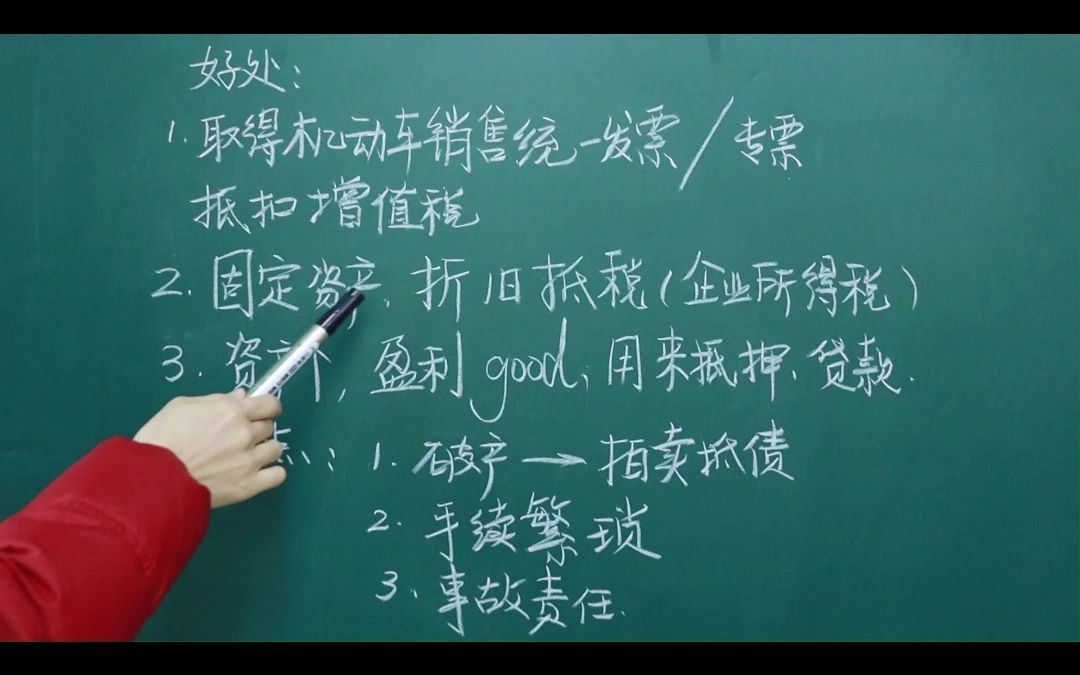 好处：
1. 取得机动车销售统一发票/专票
抵扣增值税
2. 固定资产, 折旧抵税(企业所得税)
3. 资产个, 盈利good, 用来抵押、贷款.
点: 1. 破产→拍卖抵债
2. 手续繁琐
3. 事故责任.